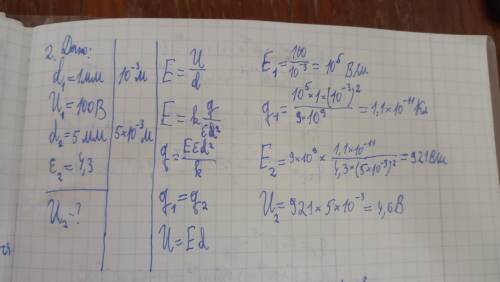 2. Дано:
d₁=1мм
U₁=100В
d₂=5мм
ε₂=4,3
U₂-?
10⁻³м
5×10⁻³м
E=U/d
E=k q/εd²
q=Eεd²/k
q₁=q₂
U=Ed
E₁=100/10⁻³=10⁵ В/м
q₁=10⁵×1×(10⁻³)²/9×10⁹=1,1×10⁻¹¹ Кл
E₂=9×10⁹×1,1×10⁻¹¹/4,3×(5×10⁻³)²=921В/м
U₂=921×5×10⁻³=4,6В